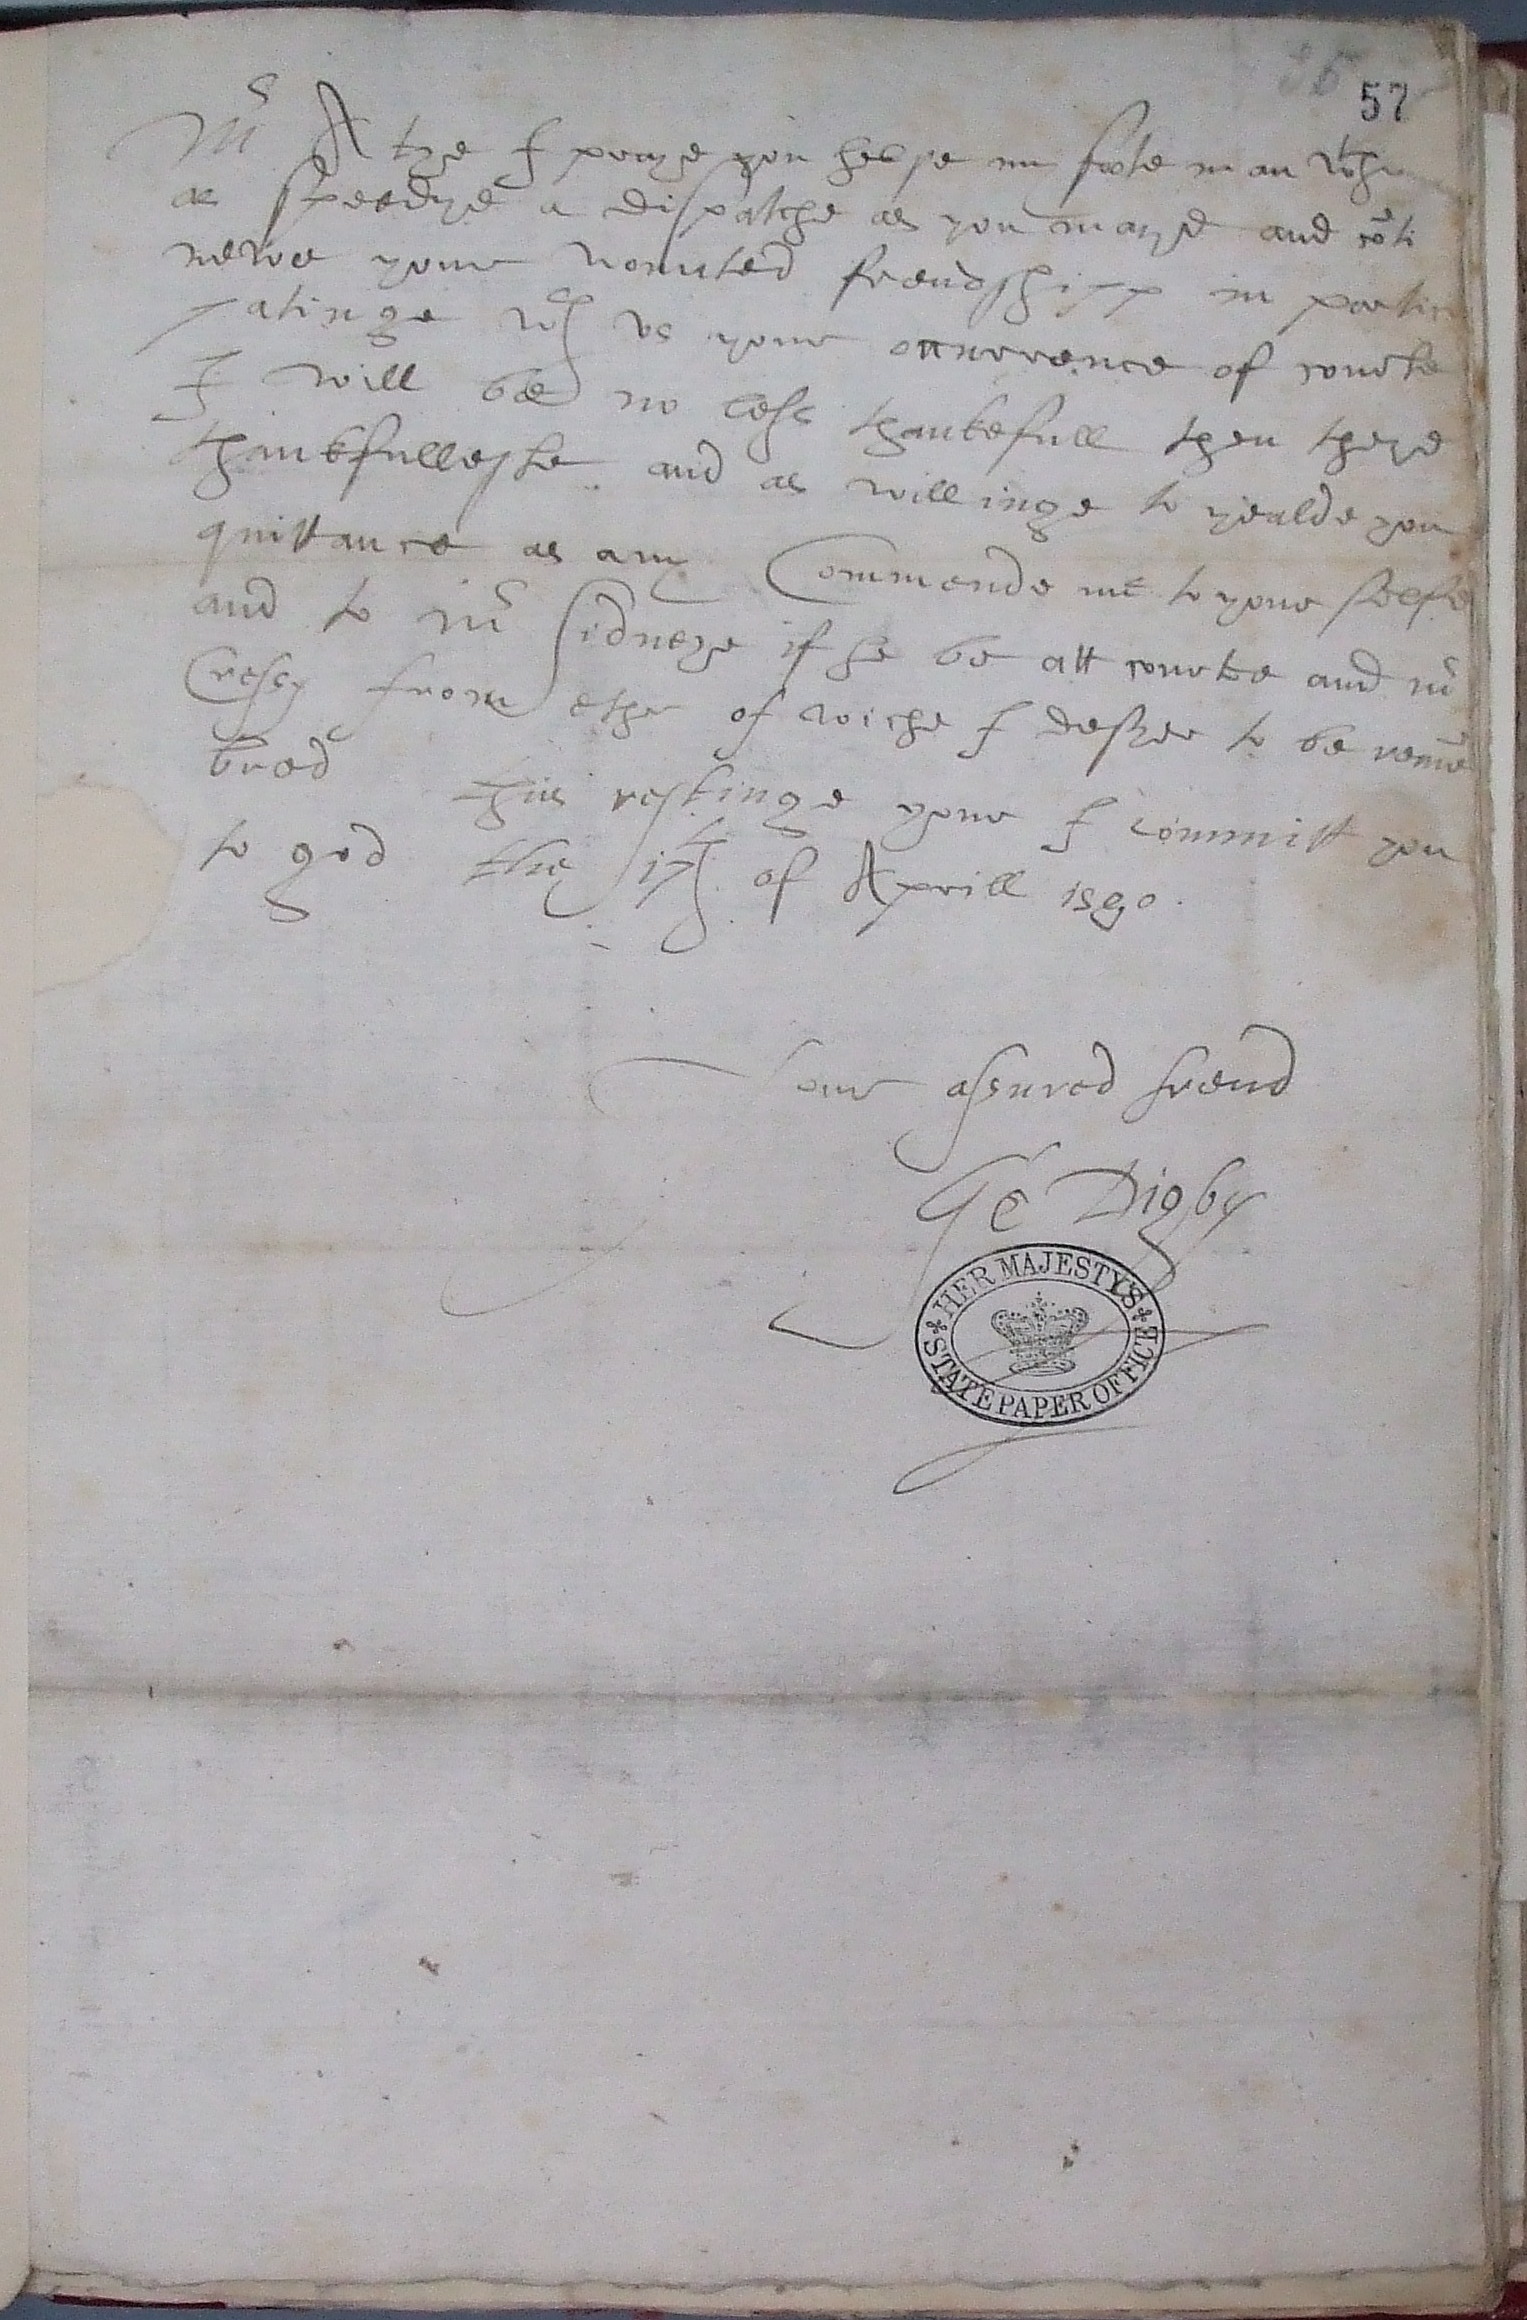 35
57
Mr Atye I praye you helpe my foote man wth
as speedye a dispatche as you maye and cōti
newe your wounted frendshipp in partici
patinge wth vs your occurrence of courte
I will be no lesse thankefull then theye
thankfulleste and as willinge to yealde you
quittance as any Commende me to your selfe
and to Mr Sidneye if he be att courte and Mr
Cressy from ether of wiche I desyer to be remē
bred this restinge your I committ you
to god this 17th of Aprill 1590.
Your assured frend
Ge Digby
HER MAJESTY'S STATE PAPER OFFICE